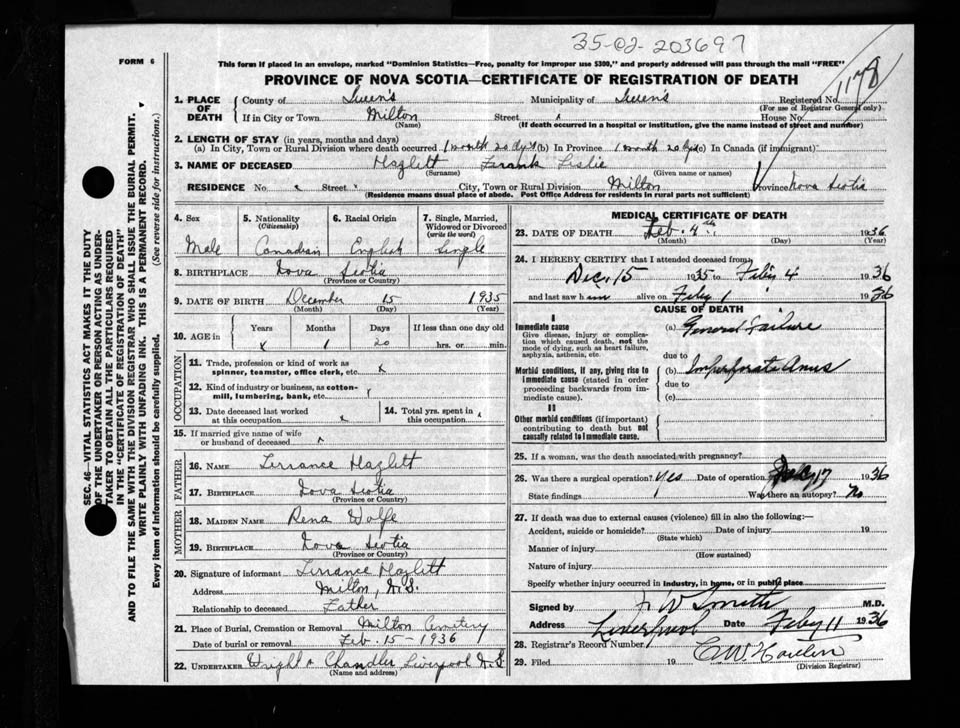 35-02-203697
FORM 6
This form if placed in an envelope, marked "Dominion Statistics—Free, penalty for improper use $300," and properly addressed will pass through the mail "FREE"
PROVINCE OF NOVA SCOTIA—CERTIFICATE OF REGISTRATION OF DEATH
1178
SEC. 46—VITAL STATISTICS ACT MAKES IT THE DUTY
OF THE UNDERTAKER OR PERSON ACTING AS UNDER-
TAKER TO OBTAIN ALL THE PARTICULARS REQUIRED
IN THE "CERTIFICATE OF REGISTRATION OF DEATH"
AND TO FILE THE SAME WITH THE DIVISION REGISTRAR WHO SHALL ISSUE THE BURIAL PERMIT.
WRITE PLAINLY WITH UNFADING INK. THIS IS A PERMANENT RECORD.
Every item of Information should be carefully supplied. (See reverse side for instructions.)
1. PLACE OF DEATH County of Queen's Municipality of Queen's Registered No.
(For use of Registrar General only)
If in City or Town Milton Street x House No.
(Name) (If death occurred in a hospital or institution, give the name instead of street and number)
2. LENGTH OF STAY (in years, months and days)
(a) In City, Town or Rural Division where death occurred 1 month 20 dys (b) In Province 1 month 20 dys (c) In Canada (if immigrant)
3. NAME OF DECEASED Hazlitt Frank Leslie
(Surname) (Given name or names)
RESIDENCE No. x Street x City, Town or Rural Division Milton Province Nova Scotia
(Residence means usual place of abode. Post Office Address for residents in rural parts not sufficient)
4. Sex 5. Nationality (Citizenship) 6. Racial Origin 7. Single, Married, Widowed or Divorced (write the word)
Male Canadian English Single
8. BIRTHPLACE Nova Scotia
(Province or Country)
9. DATE OF BIRTH December 15 1935
(Month) (Day) (Year)
10. AGE in Years Months Days If less than one day old
x 1 20 hrs. or min.
OCCUPATION
11. Trade, profession or kind of work as
spinner, teamster, office clerk, etc. x
12. Kind of industry or business, as cotton-
mill, lumbering, bank, etc.
13. Date deceased last worked
at this occupation x
14. Total yrs. spent in
this occupation x
15. If married give name of wife
or husband of deceased x
FATHER
16. NAME Terrance Hazlitt
17. BIRTHPLACE Nova Scotia
(Province or Country)
MOTHER
18. MAIDEN NAME Rena Wolfe
19. BIRTHPLACE Nova Scotia
(Province or Country)
20. Signature of informant Terrance Hazlitt
Address Milton, N.S.
Relationship to deceased Father
21. Place of Burial, Cremation or Removal Milton Cemetery
Date of burial or removal Feb. 15-1936
22. UNDERTAKER Wright & Chandler Liverpool N.S.
(Name and address)
MEDICAL CERTIFICATE OF DEATH
23. DATE OF DEATH Feb. 4th 1936
(Month) (Day) (Year)
24. I HEREBY CERTIFY that I attended deceased from
Dec. 15 1935 to Feby 4 1936
and last saw him alive on Feby 1 1936
CAUSE OF DEATH
I
Immediate cause
Give disease, injury or complica-
tion which caused death, not the
mode of dying, such as heart failure,
asphyxia, asthenia, etc.
(a) General Failure
due to
Morbid conditions, if any, giving rise to
immediate cause (stated in order
proceeding backwards from im-
mediate cause).
(b) Imperforate Anus
due to
(c)
II
Other morbid conditions (if important)
contributing to death but not
causally related to immediate cause.
25. If a woman, was the death associated with pregnancy?
26. Was there a surgical operation? Yes Date of operation 17 1936
State findings Was there an autopsy? No
27. If death was due to external causes (violence) fill in also the following:—
Accident, suicide or homicide? Date of injury 19
(State which)
Manner of injury
(How sustained)
Nature of injury
Specify whether injury occurred in industry, in home, or in public place
Signed by J. W Smith M.D.
Address Liverpool Date Feby 11 1936
28. Registrar's Record Number
29. Filed 19
(Division Registrar)